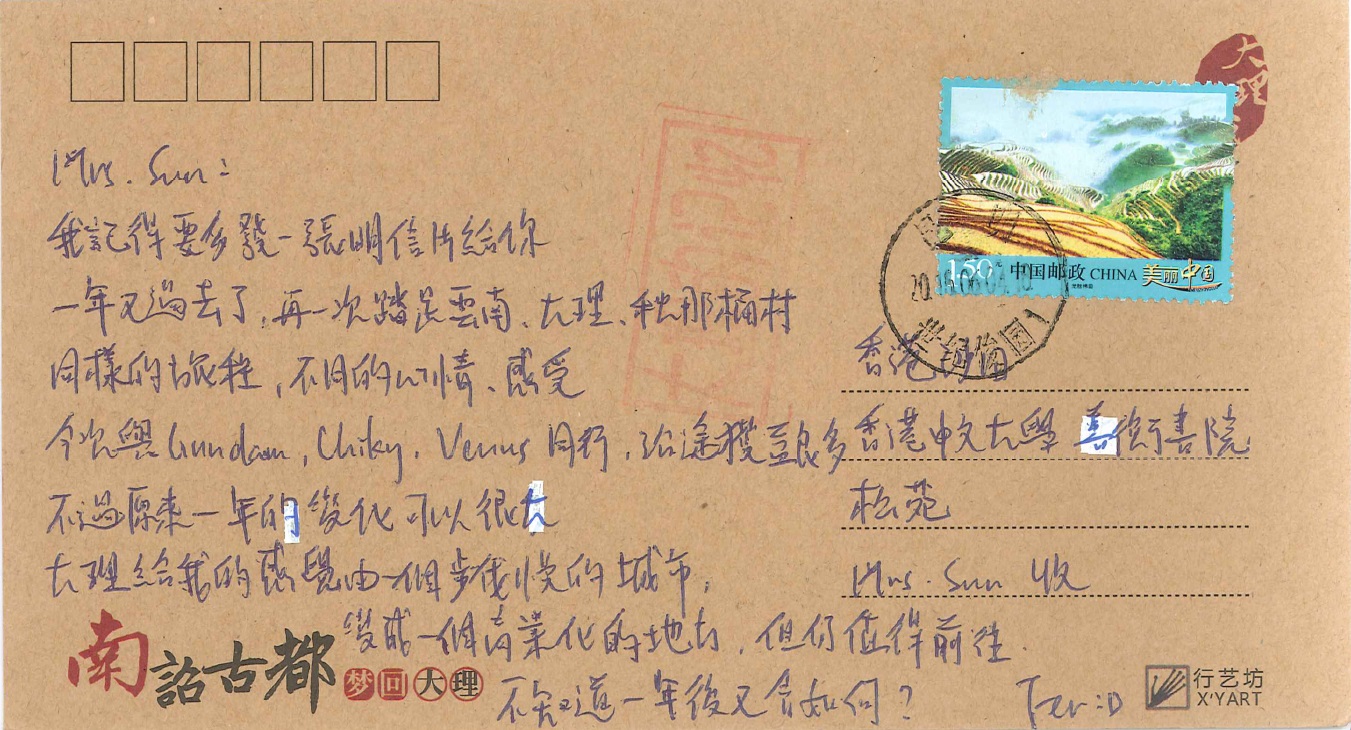 Mrs. Sun:
我記得要多發一張明信片給你
一年又過去了,再一次踏足雲南、大理、秋那桶村
同樣的旅程,不同的心情、感受
今次與Gundam, Chiky, Venus 同行,沿途獲益良多
不過原來一年的變化可以很大
大理給我的感覺由一個步伐慢的城市,
變成一個商業化的地方,但仍值得前往.
不知道一年後又會如何?
大理
1.50元 中国邮政 CHINA 美丽中国
香港 沙田
香港中文大學 善衡書院
松苑
Mrs. Sun 收
南詔古都 梦回大理
行艺坊
X'YART